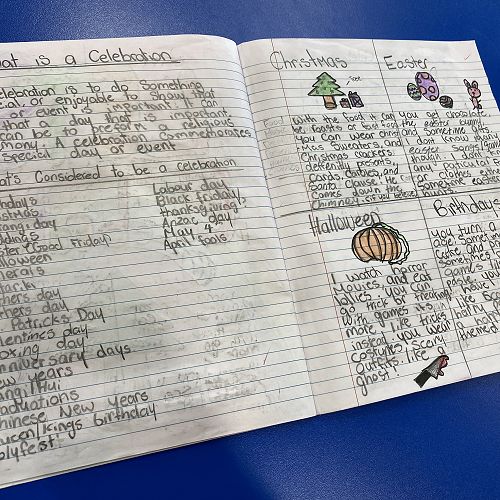 at is a Celebration
elebration is to do something
cial or enjoyable to show that
or event is important. It can
that a day that is important.
n be to presorm a religious
mony. A celebration commemorates
special day or event
at's Considered to be a celebration
hdays
istmas
rangi day
ddings
ter (Good Friday)
lloween
nerals
tariki
thers day
thers day
Patricks Day
lentines day
oxing day
nniversary days
ew years
angi/Hui
aduations
hinese New years
ueen/kings birthday
olyfest
Labour day
Black friday
thanksgiving
Anzac day
May 4
April fools
Christmas
With the food it can
be roasts or
You can wear christ
mas sweaters, and
Christmas crackers,
defently presents,
cards, dishes, and
Santa Clause. He
comes down the
chimney. if you believe
Easter
You get chocolate
the easter bunny
and sometime gifts
I don't know
easter songs
though I don't
any particular
or clothes either
Sometime easter
Halloween
I watch horror
Movies and eat
lollies. You can
go trick or treating
With games it's
more like tricks
instead. you wear
costumes scary
outfits like a
ghost
Birthdays
You turn a
age. Some
cake
Sometimes
game
party
You
have
like
hat
A
theme